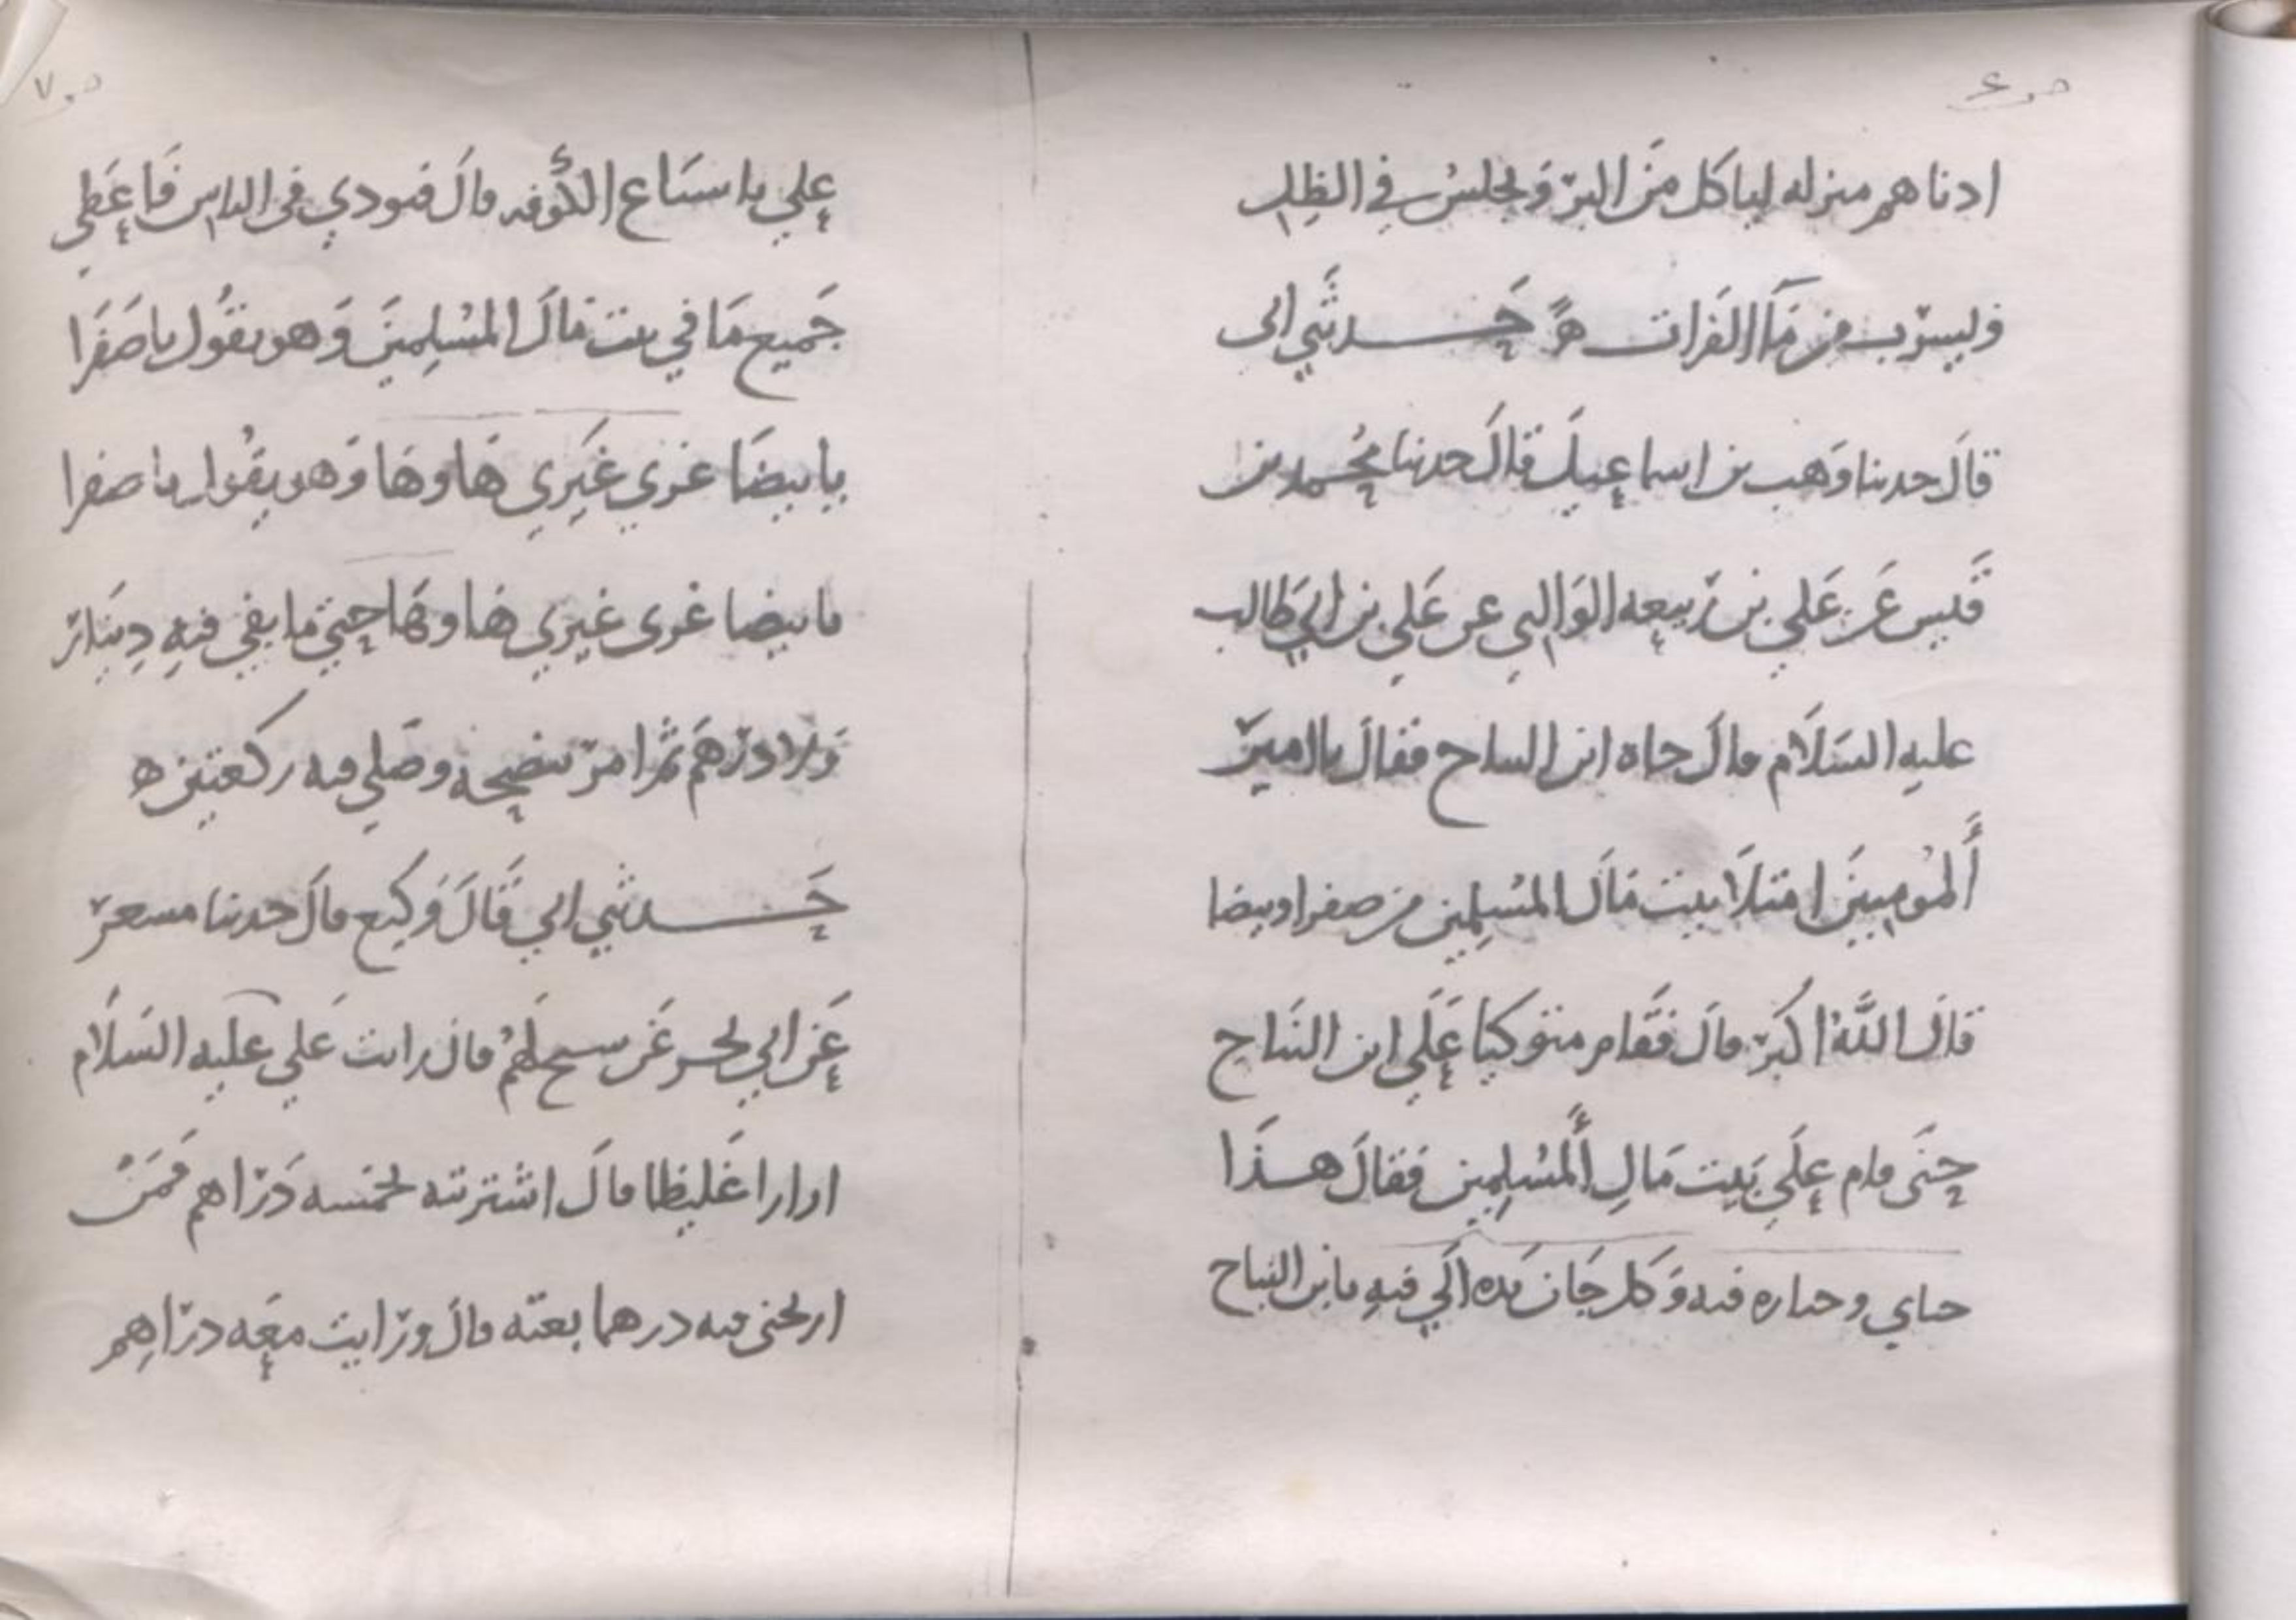 ص ٤
ادناهم منزله لياكل من البر ويجلس في الظل
وليشرب من ماء الفرات ه حدثني ابي
قال حدثنا وهب بن اسماعيل قال حدثنا محمد بن
قيس عن علي بن ربيعه الوالبي عن علي بن ابي طالب
عليه السلام قال جاه ابن النباح فقال يا امير
المومنين امتلا بيت مال المسلمين من صفرا وبيضا
قال الله اكبر قال فقام متوكيا على ابن النباح
حتى قام على بيت مال المسلمين فقال هذا
جناي وخياره فيه وكل جان يده الى فيه يا بن النباح
ص ٧
علي باشياع الكوفه قال فنودي في الناس فاعطى
جميع ما في بيت مال المسلمين وهو يقول يا صفرا
يا بيضا غري غيري ها وها وهو يقول يا صفرا
يا بيضا غري غيري ها وها حتى ما بقي فيه دينار
ولا درهم ثم امر بنضحه وصلى فيه ركعتين ه
حدثني ابي قال وكيع قال حدثنا مسعر
عن ابي بحر عن شيخ لهم قال رايت علي عليه السلام
ازارا غليظا قال اشتريته بخمسه دراهم فمن
اربحني فيه درهما بعته قال ورايت معه دراهم